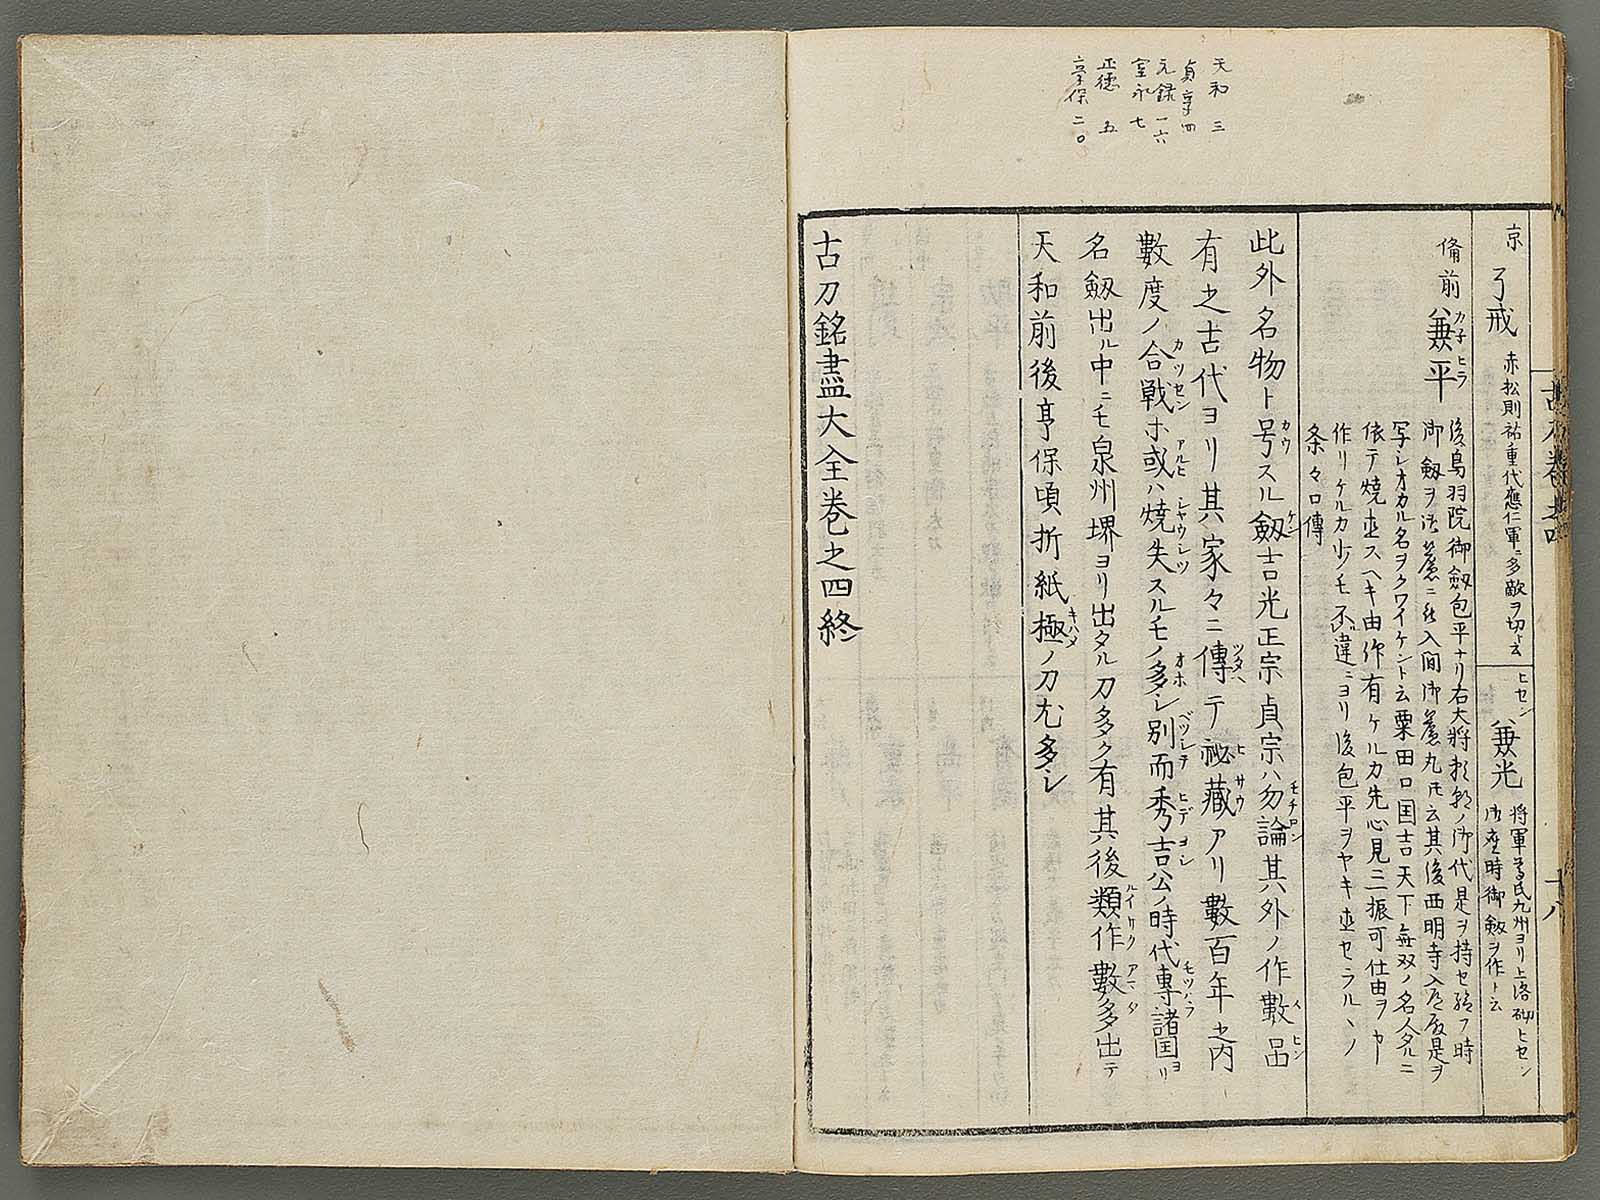 天和三
貞享四
元録一六
宝永七
正德五
享保二〇
京 了戒 赤松則祐重代應仁軍ニ多敵ヲ切ト云
ヒセン 兼光 将軍尊氏九州ヨリ上洛 ヒセン
御座時御釼ヲ作ト云
備前 兼平 カ子ヒラ
後鳥羽院御釼包平ナリ右大将 ノ御代是ヲ持セ給フ時
御釼ヲ 簾ニ 入間御簾丸氏云其後西明寺入 殿是ヲ
写シオカル名ヲクワイケント云粟田口国吉天下無双ノ名人タルニ
依テ焼 スヘキ由作有ケルカ先心見ニ二振可仕由ヲ
作リケルカ少モ不違ニヨリ後包平ヲヤキ セラルヽノ
条々口傳
此外名物ト号スル釼吉光正宗貞宗ハ勿論其外ノ作數品
有之古代ヨリ其家々ニ傳テ祕藏アリ數百年之内
數度ノ合戦ホ或ハ焼失スルモノ多シ別而秀吉公ノ時代專諸国ヨリ
名釼出ル中ニモ泉州堺ヨリ出タル刀多ク有其後類作數多出テ
天和前後享保頃折紙極ノ刀尤多シ
古刀銘盡大全巻之四終
十八